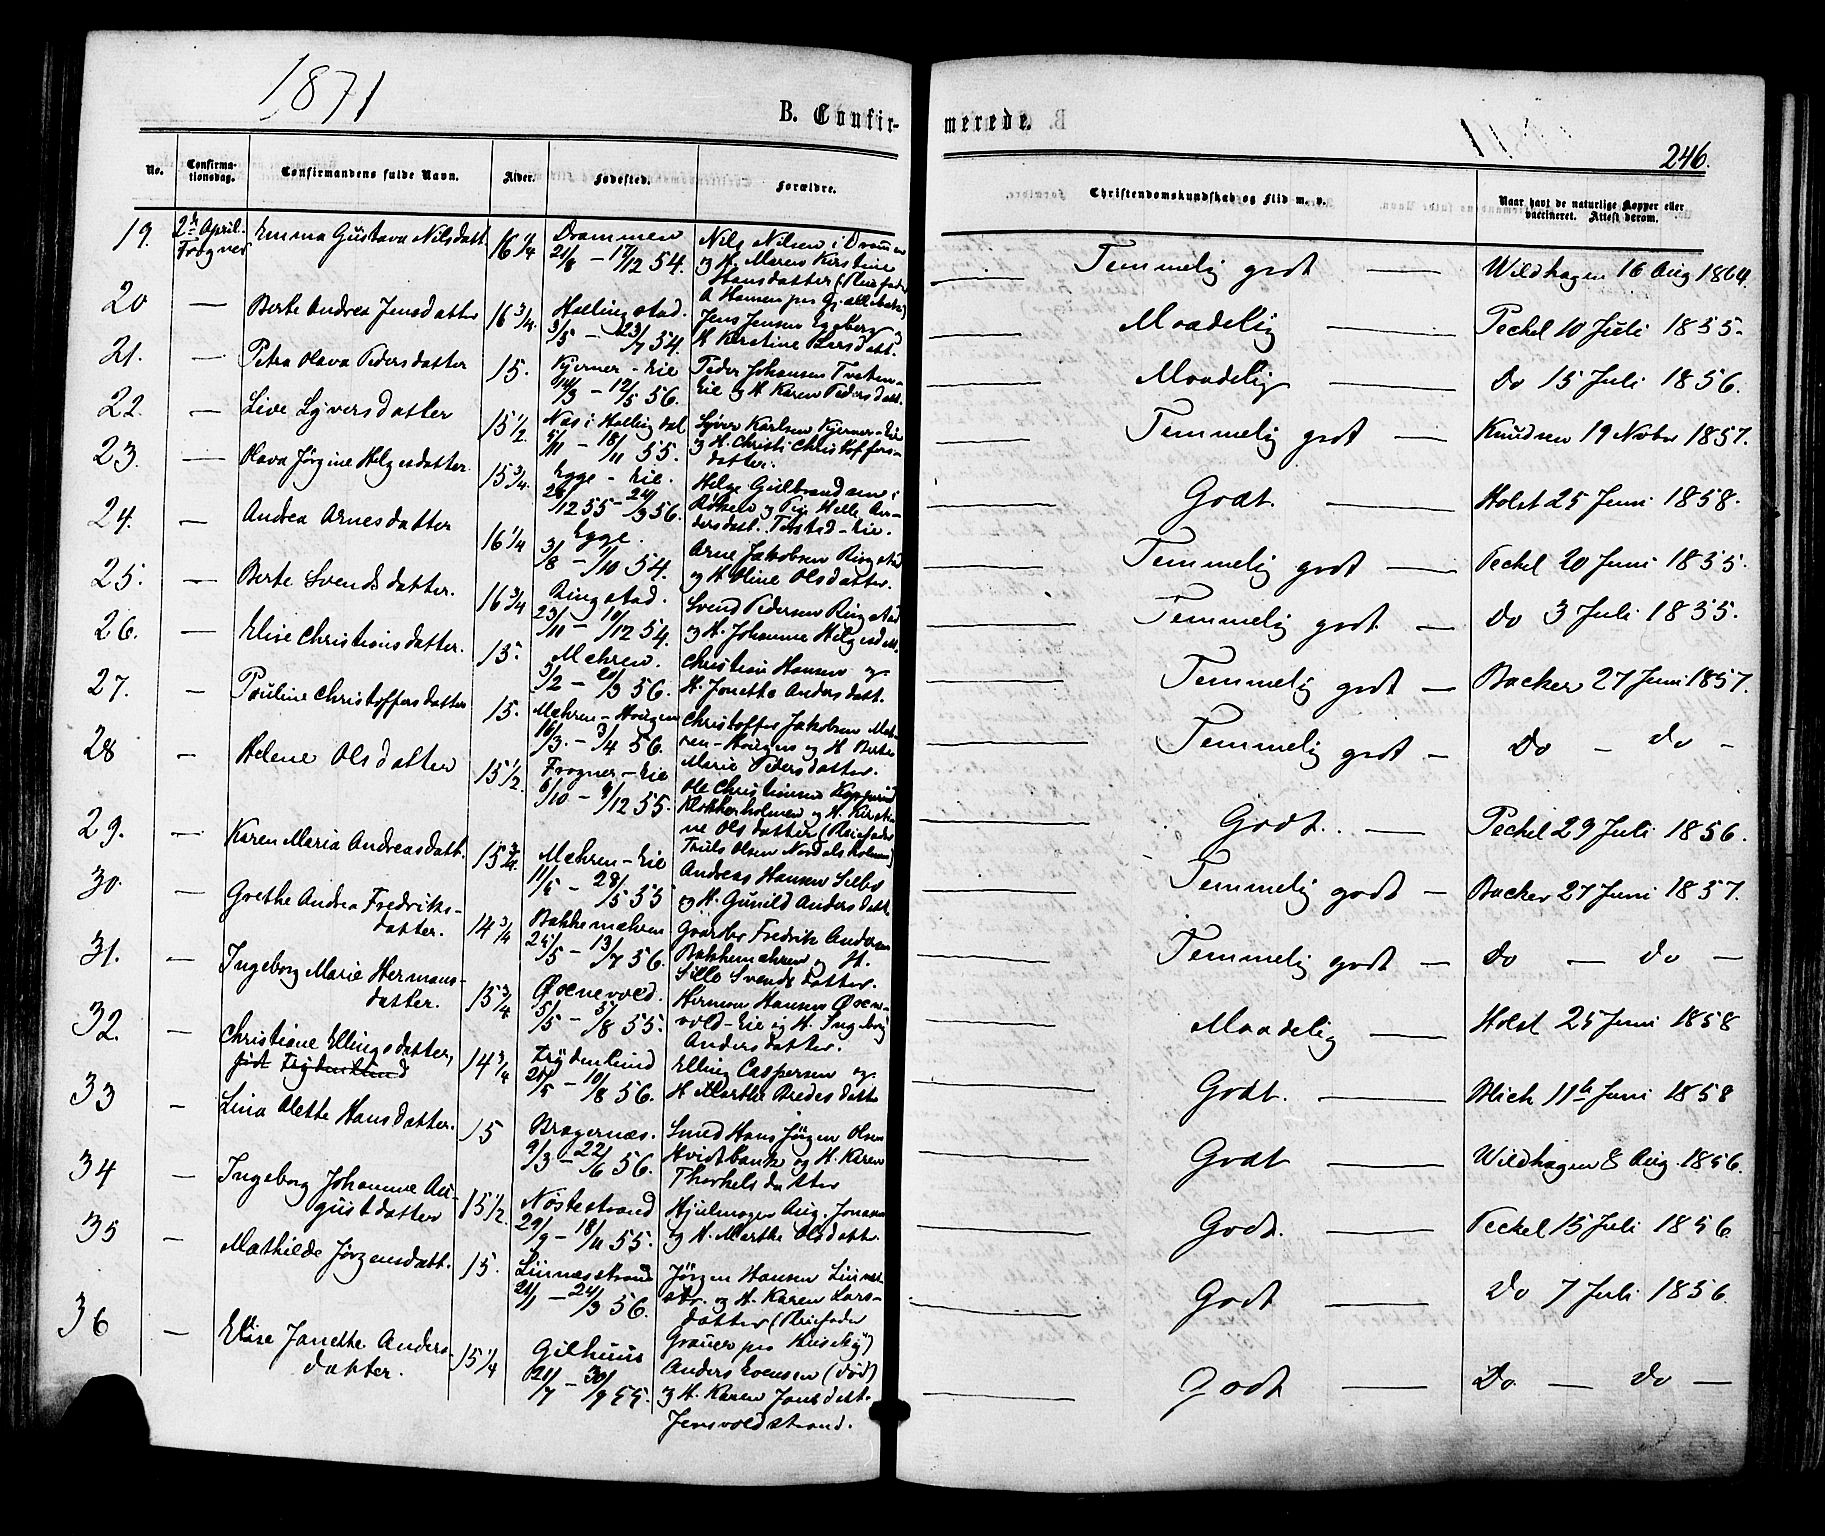 1871
B. Confirmerede.
246.
No. Confirmationsdag. Confirmandens fulde Navn. Alder. Fødested. Forældre. Christendomskundskab og Flid m. v. Naar havt de naturlige Kopper eller vaccineret. Attest derom.
19. 2den April Frogner Emma Gustava Nilsdatt. 16 1/4 Drammen 21/8 – 17/12 54. Nils Nilsen i Drammen og H. Maren Kirstine Hansdatter (Pleiefader A Hansen paa Gjellebæk) — Temmelig godt — Wildhagen 16 Aug 1864
20 — Berte Andrea Jensdatter 16 3/4. Hallingstad. 3/5 – 23/7 54. Jens Jensen Eggeberg og H Kirstine Larsdatt. — Maadelig — Peckel 10 Juli 1855.
21. — Petra Olava Pedersdatter 15. Kjerner-Eie 14/3 – 12/5 56. Peder Johansen Tveten-Eie og H Karen Pedersdatt. — Maadelig — Do 15 Juli 1856.
22. — Live Syversdatter 15 1/2 Næs i Hallingdal 5/11 – 18/11 55. Syver Karlsen Kjerner-Eie og H. Christi Christoffersdatter. — Temmelig godt — Knudsen 19 Novbr 1857.
23. — Olava Jørgine Helgesdatter 15 3/4. Egge-Eie. 28/12 55 – 24/3 56. Helge Gulbrandsen i Røken og Pig. Helle Andersdatt. Tosted-Eie. — Godt. — Holst 25 Juni 1858.
24. — Andrea Arnesdatter 16 1/4 Egge. 3/8 – 1/10 54. Arne Jakobsen Ringstad og H Oline Olsdatter. — Temmelig godt — Peckel 20 Juni 1855.
25. — Berte Svendsdatter. 16 3/4 Ringstad. 23/10 – 10/12 54. Svend Pedersen Ringstad og H. Johanne Helgesdatt. — Temmelig godt — Do 3 Juli 1855.
26. — Elise Christiansdatter. 15. Mehren. 5/2 – 20/3 56. Christian Hansen og H. Jonette Andersdatt. — Temmelig godt — Backer 27 Juni 1857.
27. — Pauline Christoffersdatter 15. Mehren-Hougen 16/3 – 3/4 56. Christoffer Jakobsen Mehren-Hougen og H Berte Marie Pedersdatter. — Temmelig godt — Do – Do –
28 — Helene Olsdatter 15 1/2. Frogner-Eie 6/10 – 9/12 55. Ole Christiansen Klokkerholmen og H. Kirstine Olsdatter (Pleiefader Truls Olsen Nordalsholmen) — Godt. — Peckel 29 Juli 1856.
29. — Karen Maria Andreasdatt. 15 3/4 Mehren-Eie 11/5 – 28/5 55 Andreas Hansen Selbo og H. Gunild Andersdatt — Temmelig godt — Backer 27 Juni 1857.
30. — Grethe Andrea Fredriksdatter. 14 3/4 Bakkemehren 25/5 – 13/7 56. Gaardbr Fredrik Andersen Bakkemehren og H. Sille Svendsdatter. — Temmelig godt — Do — Do —
31. — Ingeborg Marie Hermansdatter. 15 3/4 Øsenevold. 5/5 – 5/8 55. Herman Hansen Øsenevold-Eie og H. Ingeborg Andersdatter. — Maadelig — Holst 25 Juni 1858
32. — Christiane Ellingsdatter, født Frydenlund 14 3/4 Frydenlund 25/5 – 10/8 56. Elling Caspersen og H Marthe Bredesdatt — Godt. — Blich 11te Juni 1858
33 — Lina Olette Hansdatter. 15 Bragernæs. 9/3 – 22/6 56. Smed Hans Jørgen Olsen Hvidtbank og H. Karen Thorkelsdatter — Godt — Wildhagen 8 Aug. 1856.
34 — Ingeborg Johanne Augustdatter 15 1/2. Nøstestrand 29/9 – 18/11 55. Hjulmager Aug. Jonassen og H. Marthe Olsdatt. — Godt. — Peckel 15 Juli 1856
35 — Mathilde Jørgensdatt. 15. Linnæsstrand 21/1 – 24/3 56. Jørgen Hansen Linnæsstr. og H. Karen Larsdatter (Pleiefader Grauer paa Huseby) — Godt — Do 7 Juli 1856
36 — Elise Janette Andersdatter. 15 1/4 Gilhuus 21/7 – 30/9 55. Anders Evensen (død) og H. Karen Jansdatt. Jensvoldstrand. — Godt — Do — Do —